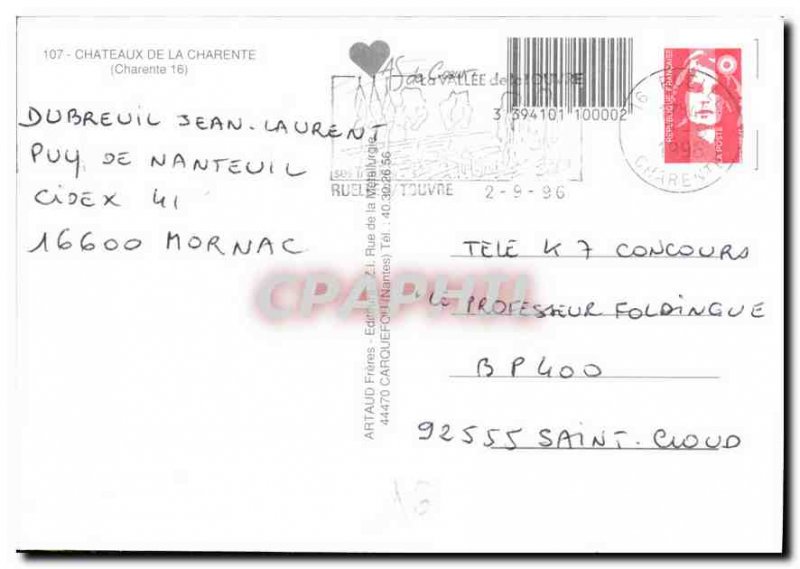 107 - CHATEAUX DE LA CHARENTE
(Charente 16)
DUBREUIL JEAN-LAURENT
PUY DE NANTEUIL
CIDEX 41
16600 MORNAC
AS de Coeur
La VALLÉE de la TOUVRE
RUELLE / TOUVRE 2-9-96
3 394101 100002
1996
CHARENTE
REPUBLIQUE FRANÇAISE
LA POSTE
ARTAUD Frères - Editeurs - Z.I. Rue de la Métallurgie
44470 CARQUEFOU (Nantes) Tél. : 40.30.26.56
CPAPHIL
TELE K 7 CONCOURS
"LE PROFESSEUR FOLDINGUE
BP 400
92555 SAINT-CLOUD